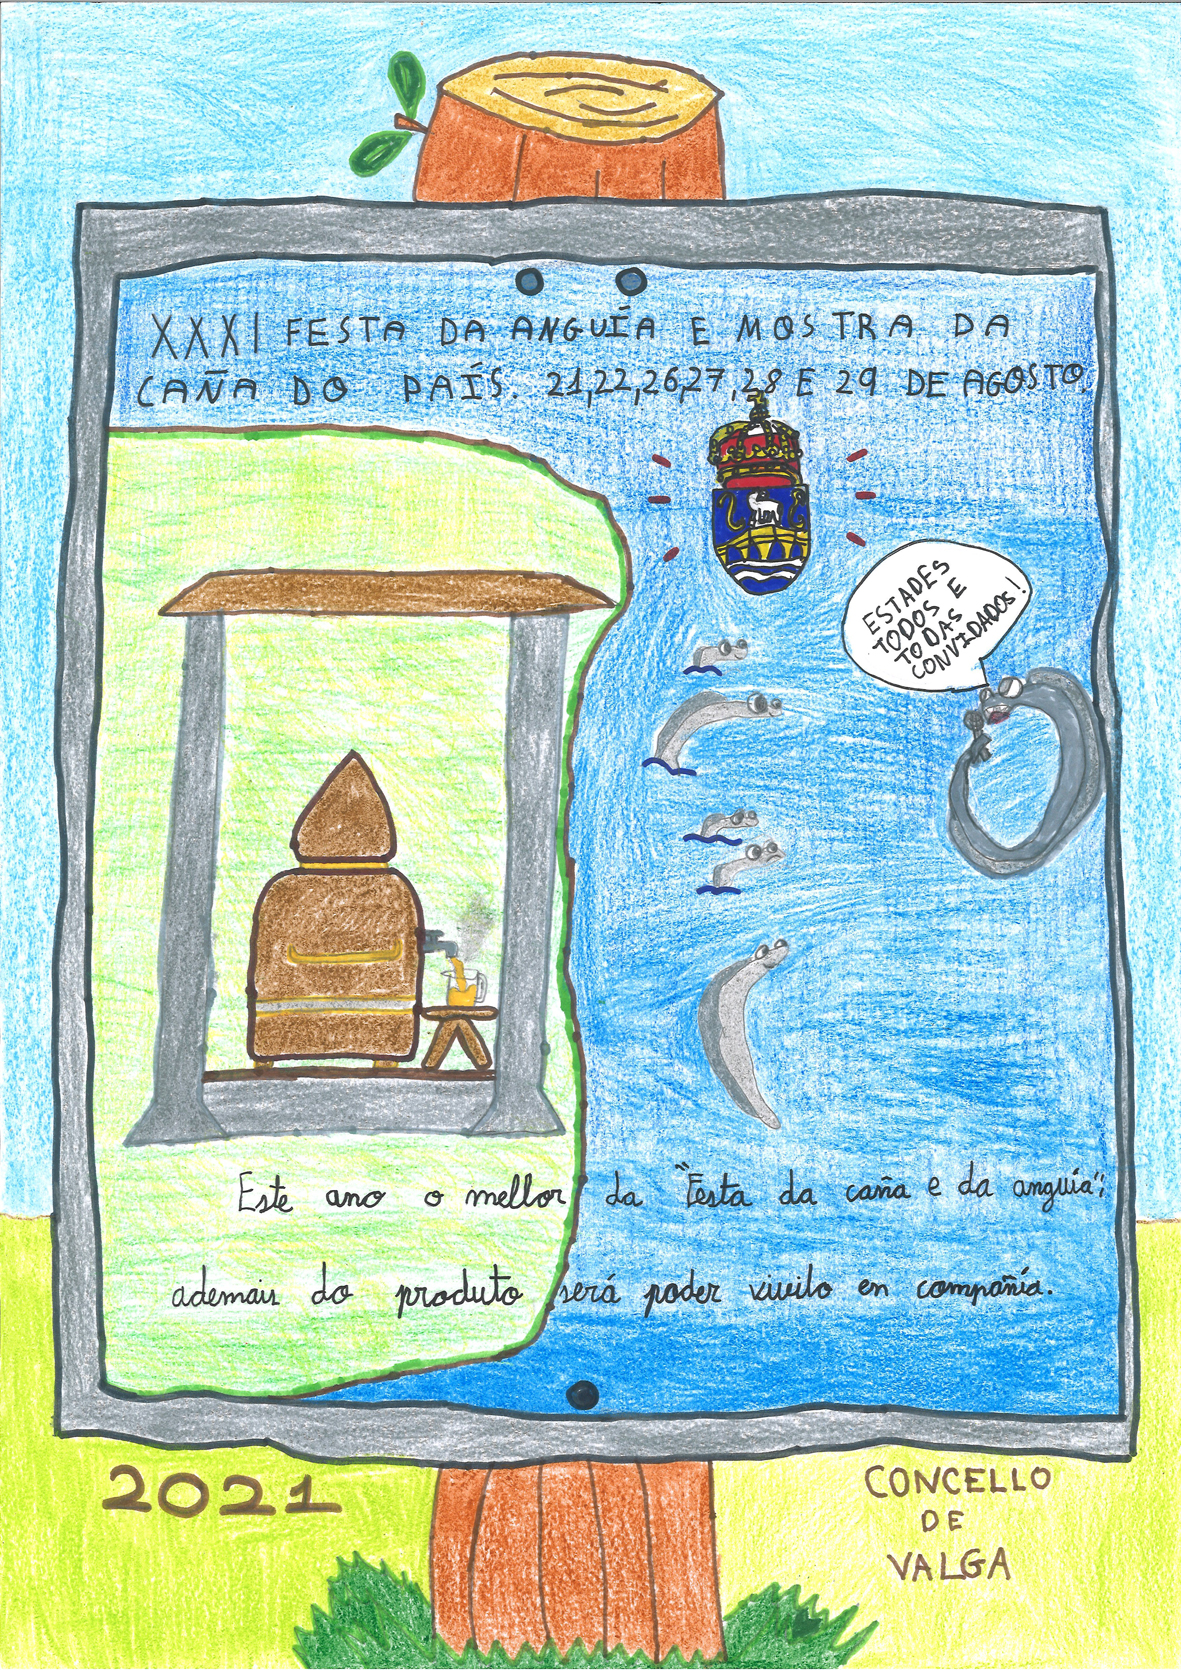 XXXI FESTA DA ANGUÍA E MOSTRA DA
CAÑA DO PAÍS. 21,22,26,27,28 E 29 DE AGOSTO.
ESTADES
TODOS E
TODAS
CONVIDADOS!
Este ano o mellor da "Festa da caña e da anguía";
ademais do produto será poder vivilo en compañía.
2021
CONCELLO
DE
VALGA